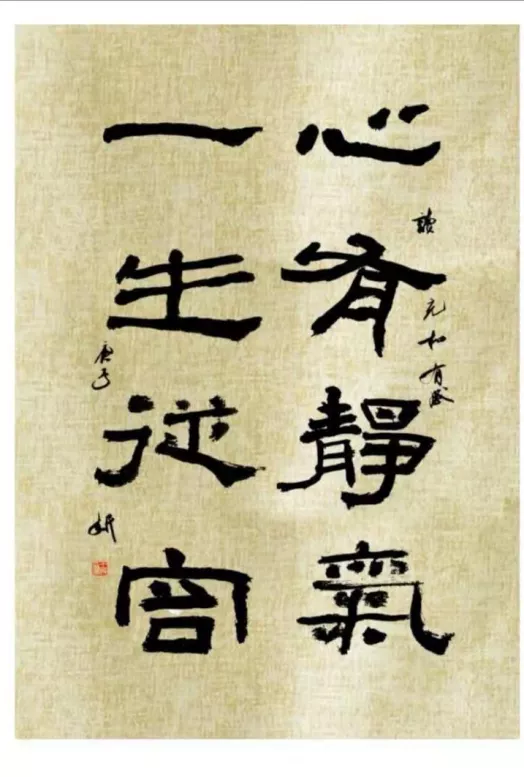 心有靜氣
一生從容
讀充和有感
庚子